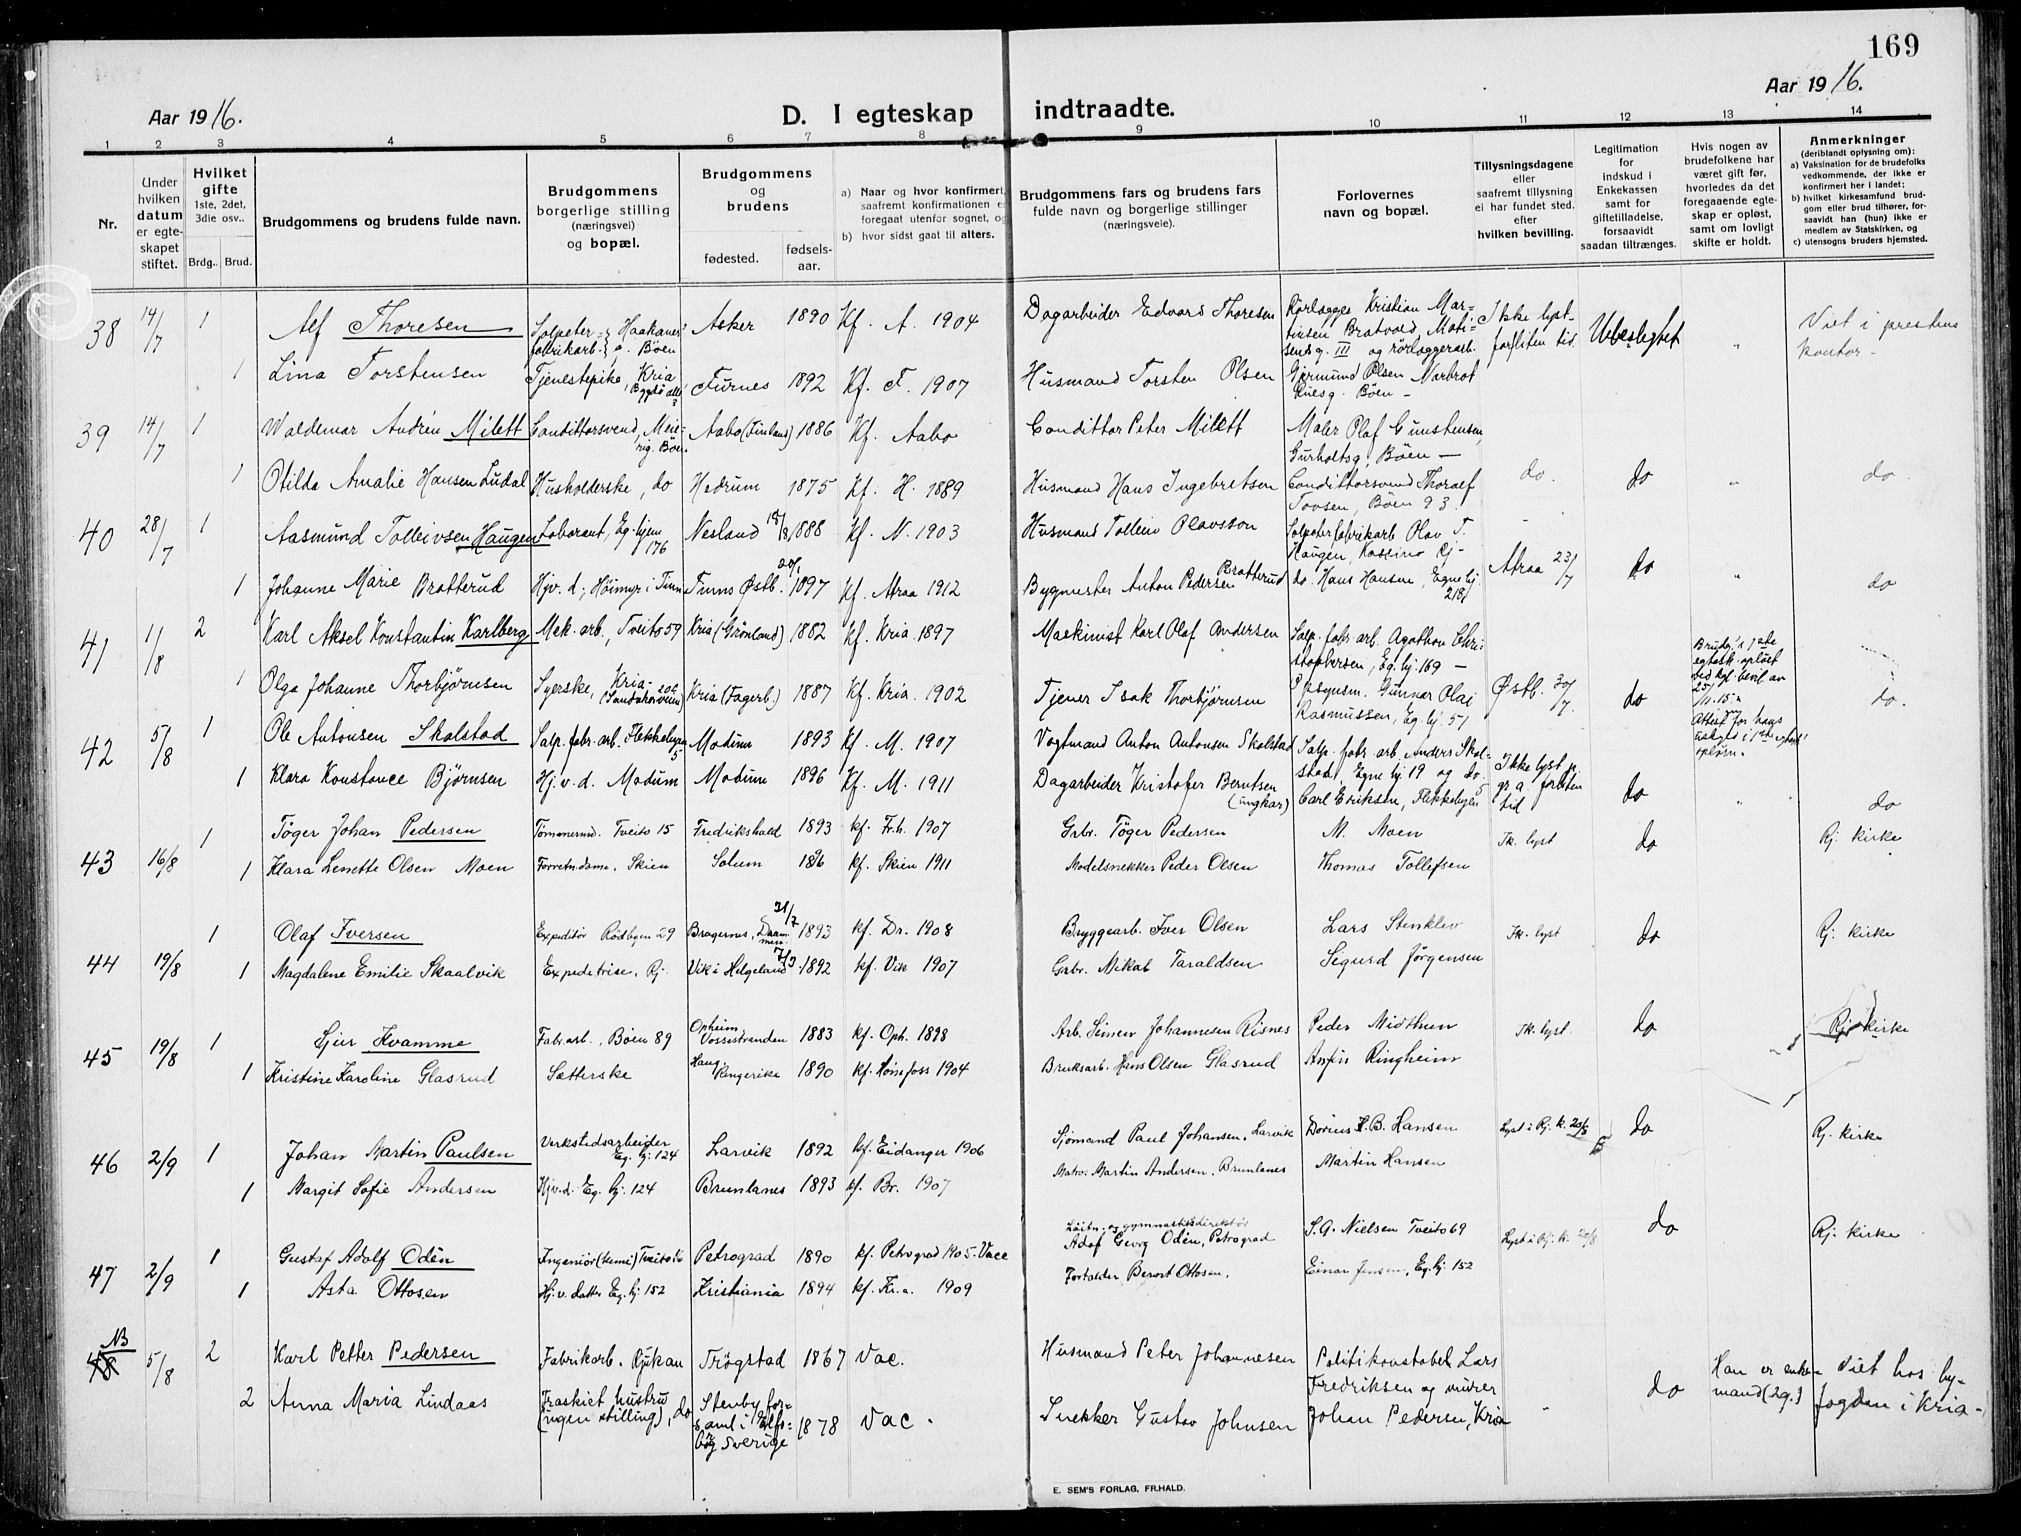 169
Aar 1916.
D. I egteskap indtraadte.
Aar 1916.
1 2 3 4 5 6 7 8 9 10 11 12 13 14
Nr.
Under hvilken datum er egteskapet stiftet.
Hvilket gifte 1ste, 2det, 3die osv..
Brdg.. Brud.
Brudgommens og brudens fulde navn.
Brudgommens borgerlige stilling (næringsvei) og bopæl.
Brudgommens og brudens
fødested. fødsels-aar.
a) Naar og hvor konfirmert, saafremt konfirmationen er foregaat utenfor sognet, og
b) hvor sidst gaat til alters.
Brudgommens fars og brudens fars fulde navn og borgerlige stillinger (næringsveie).
Forlovernes navn og bopæl.
Tillysningsdagene eller saafremt tillysning ei har fundet sted, efter hvilken bevilling.
Legitimation for indskud i Enkekassen samt for giftetilladelse, forsaavidt saadan tiltrænges.
Hvis nogen av brudefolkene har været gift før, hvorledes da det foregaaende egteskap er opløst, samt om lovligt skifte er holdt.
Anmerkninger (deriblandt oplysning om):
a) Vaksination for de brudefolks vedkommende, der ikke er konfirmert her i landet;
b) hvilket kirkesamfund brudgom eller brud tilhører, forsaavidt han (hun) ikke er medlem av Statskirken, og
c) utensogns bruders hjemsted.
38 14/7 1 Alf Thoresen Salpeterfabrikarb. Haakanes a. Bøen Asker 1890 Kf. A. 1904 Dagarbeider Edvard Thoresen Rørlægge Kristian Martinsen Bratvold, III og rørlæggerarb. Ikke lyst forfliten tid. Ubeslegtet " Viet i prestens kontor
1 Lina Torstensen Tjenestepike, Kria Furnes 1892 Kf. F. 1907 Husmand Torsten Olsen Gjermund Olsen Bøen
39 14/7 1 Waldemar Andrén Milett Condittorsvend, Bøen Aabo (Finland) 1886 Kf. Aabo Condittor Peter Milett Maler Olaf Gunstensen, Gurholtsg, Bøen
1 Otilda Amalie Hansen Ludal Husholderske, do Hedrum 1875 Kf. H. 1889 Husmand Hans Ingebretsen Condittorsvend Thoralf Tovsen, Bøen 93 do. do " do
40 28/7 1 Aasmund Tolleivsen Haugen Laborant, Eg. hjem 176 Nesland 1888 kf. N. 1903 Husmand Tolleiv Olavsson Salpeterfabrikarb Olav T. Haugen, Kassino Rj
1 Johanne Marie Bratterud Hjv. d., Høimyr i Tinn Tinns Østb. 1897 Kf. Atraa 1912 Bygmester Anton Pedersen Bratterud do. Hans Hansen, Egnehj. 218 Atraa 23/7 do " do
41 1/8 2 Karl Aksel Konstantin Karlberg Mek. arb., Tveito 59 Kria (Grønland) 1882 kf. Kria 1897 Maskinist Karl Olaf Andersen Salp. fabr. arb. Agathon Christophersen, Eg. hj. 169
1 Olga Johanne Thorbjørnsen Syerske, Kria Kria (Fagerb.) 1887 Kf. Kria. 1902 Tjener Isak Thorbjørnsen Gunnar Olai Rasmussen, Eg. hj. 51 Østb. 30/7. do do.
42 5/8 1 Ole Antonsen Skalstad Salp. fabr. arb. Flekkebyen 5 Modum 1893 Kf. M. 1907 Vogtmand Anton Antonsen Skalstad Salp. fabr. arb. Anders Skalstad, Egne hj 19 og do Carl Eriksen, Flekkebyen 5
1 Klara Konstance Bjørnsen Hj. v. d. Modum Modum 1896 Kf. M. 1911 Dagarbeider Kristofer Berntsen (ungkar) Ikke lyst p. gr. a. forliten tid do " do
43 16/8 1 Tøger Johan Pedersen Tømmermd. Tveito 15 Fredrikshald 1893 kf. Fr.h. 1907 Grbr. Tøger Pedersen M. Moen Tk. lyst do Rj. kirke
1 Klara Lenette Olsen Moen Forretn.dame, Skien Solum 1896 kf. Skien 1911 Modelsnekker Peder Olsen Thomas Tollefsen
44 19/8 1 Olaf Iversen Expeditør Rødbyen 29 Bragernes, Drammen 21/7 1893 kf. Dr. 1908 Bryggearb. Iver Olsen Lars Stenklev Tk. lyst do Rj. kirke
1 Magdalene Emilie Skaalvik Expeditrise, Rj. Vik i Helgeland 1892 kf. Vik 1907 Grbr. Mikal Taraldsen Segurd Jørgensen
45 19/8 1 Sjur Kvamme Fabr.arb., Bøen 89 Opheim Vossestranden 1883 kf. Oph. 1898 Arb. Simen Johannesen Risnes Peder Midthun Tk. lyst. do Rj. kirke
1 Kristine Karoline Glasrud Sætterske Haug Ringerike 1890 kf. Hønefoss 1904 Bruksarb. Hans Olsen Glasrud Anfin Ringheim
46 2/9 1 Johan Martin Paulsen Verkstedsarbeider Eg. hj. 124 Larvik 1892 kf. Eidanger 1906 Sjømand Paul Johansen, Larvik Dorius H. B. Hansen Lyst i Rj. k. 20/8 do Rj. kirke
1 Margit Sofie Andersen Hjv.d. Eg. hj. 124 Brunlanes 1893 kf. Br. 1907 Matr. Martin Andersen, Brunlanes Martin Hansen
47 2/9 1 Gustaf Adolf Odén Ingeniør (kemi) Tveito Petrograd 1890 kf. Petrograd 1905. Vacc Løitn. og gymnastikdirektør Adof Georg Odén, Petrograd S. A. Nielsen Tveito 69 Lyst i Rj. k. 20/8 do Rj. kirke
1 Asta Ottosen Hj. v. datter Eg. hj 152 Kristiania 1894 kf. Kr.a. 1909 Forvalder Berort Ottosen. Einar Jensen, Eg. hj 152
NB 48 5/8 2 Karl Petter Pedersen Fabrikarb. Rjukan Trøgstad 1867 Vac. Husmand Peter Johannesen Politikonstabel Lars Fredriksen og murer Johan Pedersen, Kria
2 Anna Maria Lindaas Fraskilt hustru (ingen stilling), do Stenby forsaml. i Elfsborg Sverige 1878 Vac. Snekker Gustav Johnsen " do Han er enkemand (2g.) Viet hos byfogden i Kria
E. SEM'S FORLAG, FR.HALD.